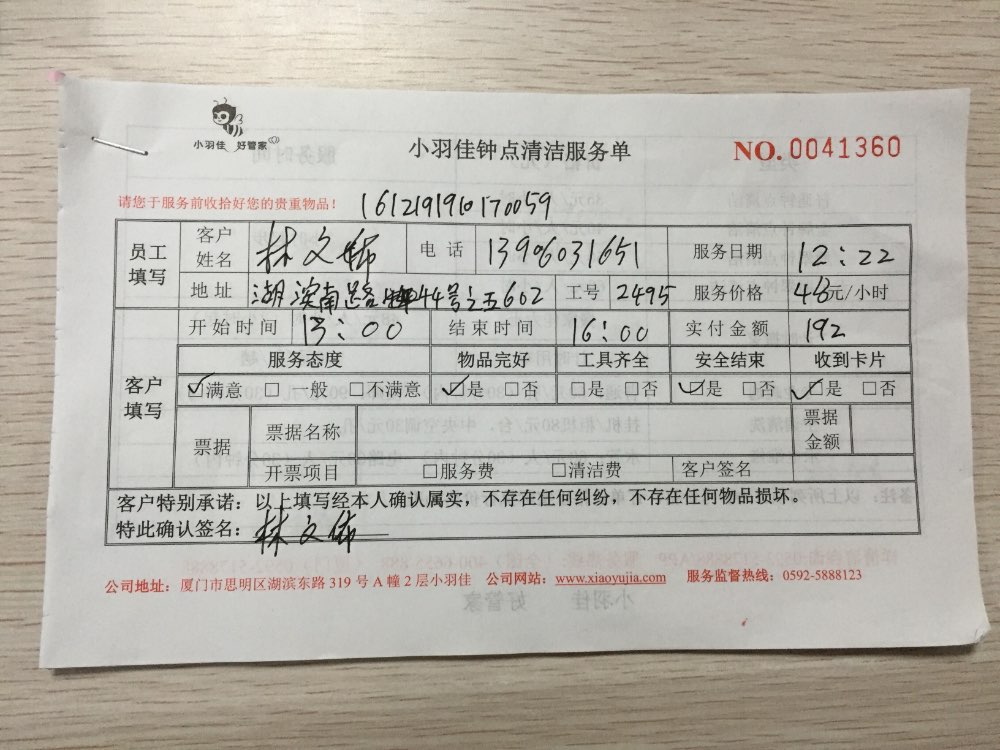 小羽佳 好管家
小羽佳钟点清洁服务单
NO. 0041360
请您于服务前收拾好您的贵重物品！ 1612191910170059
员工填写 客户姓名 林文 电话 13906031651 服务日期 12：22
地址 湖滨南路 44号之五602 工号 2495 服务价格 48元/小时
客户填写 开始时间 13：00 结束时间 16：00 实付金额 192
服务态度 物品完好 工具齐全 安全结束 收到卡片
☑满意 □ 一般 □不满意 ☑是 □否 □是 □否 ☑是 □否 ☑是 □否
票据 票据名称 票据金额
开票项目 □服务费 □清洁费 客户签名
客户特别承诺：以上填写经本人确认属实，不存在任何纠纷，不存在任何物品损坏。
特此确认签名：林文
公司地址：厦门市思明区湖滨东路 319 号 A 幢 2 层小羽佳 公司网站：www.xiaoyujia.com 服务监督热线：0592-5888123